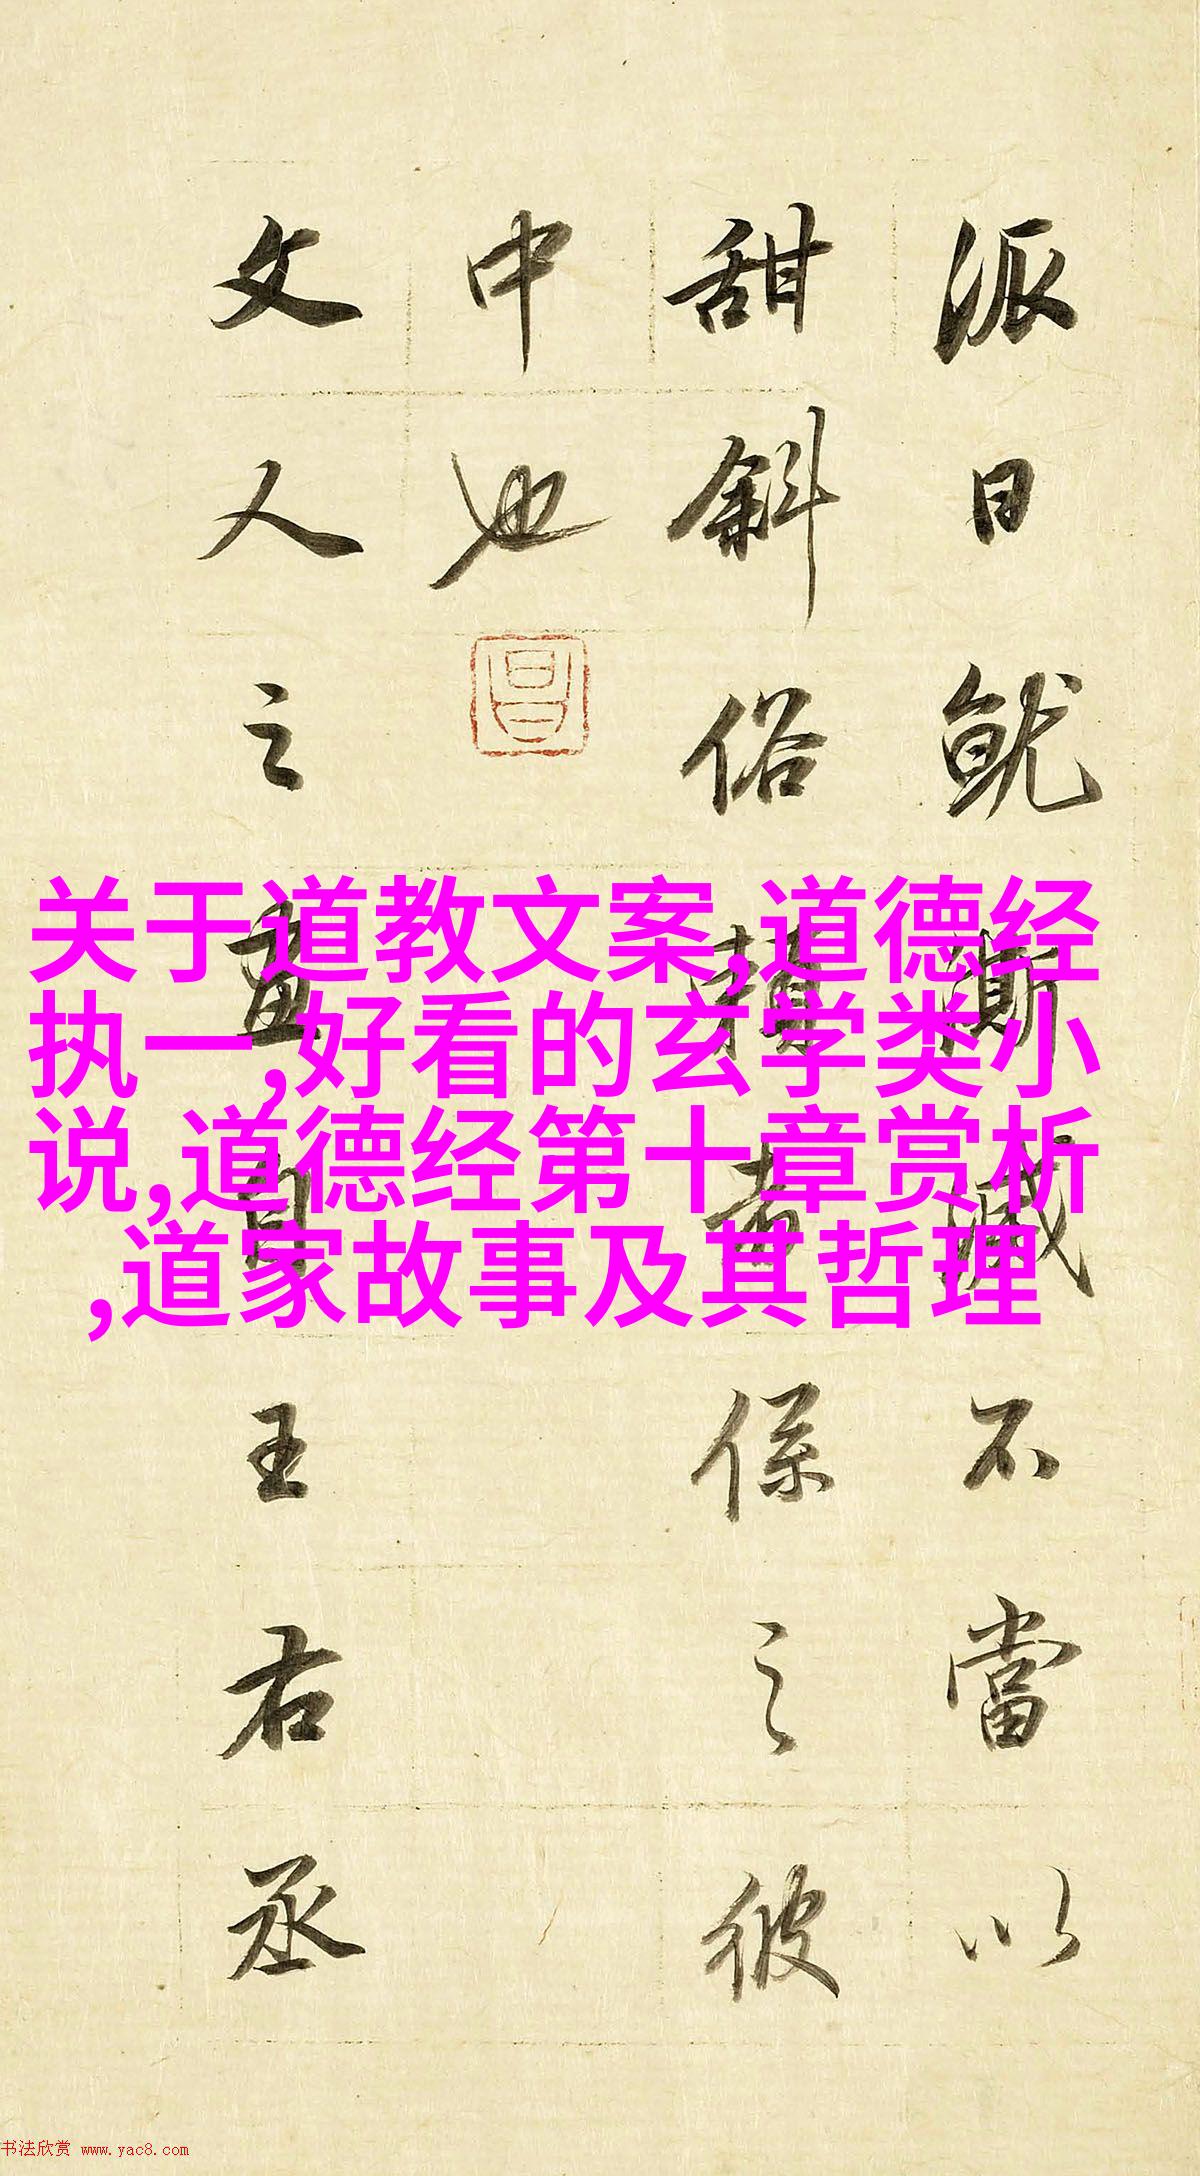 派日就澌滅不當以
甜斜俗賴者係之彼
中也
文人之畫自王右丞
关于道教文案,道德经
执一,好看的玄学类小
说,道德经第十章赏析
,道家故事及其哲理
书法欣赏 www.yac8.com